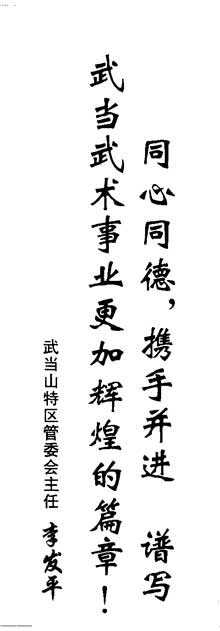 同心同德，携手并进 谱写
武当武术事业更加辉煌的篇章！
武当山特区管委会主任 李发平